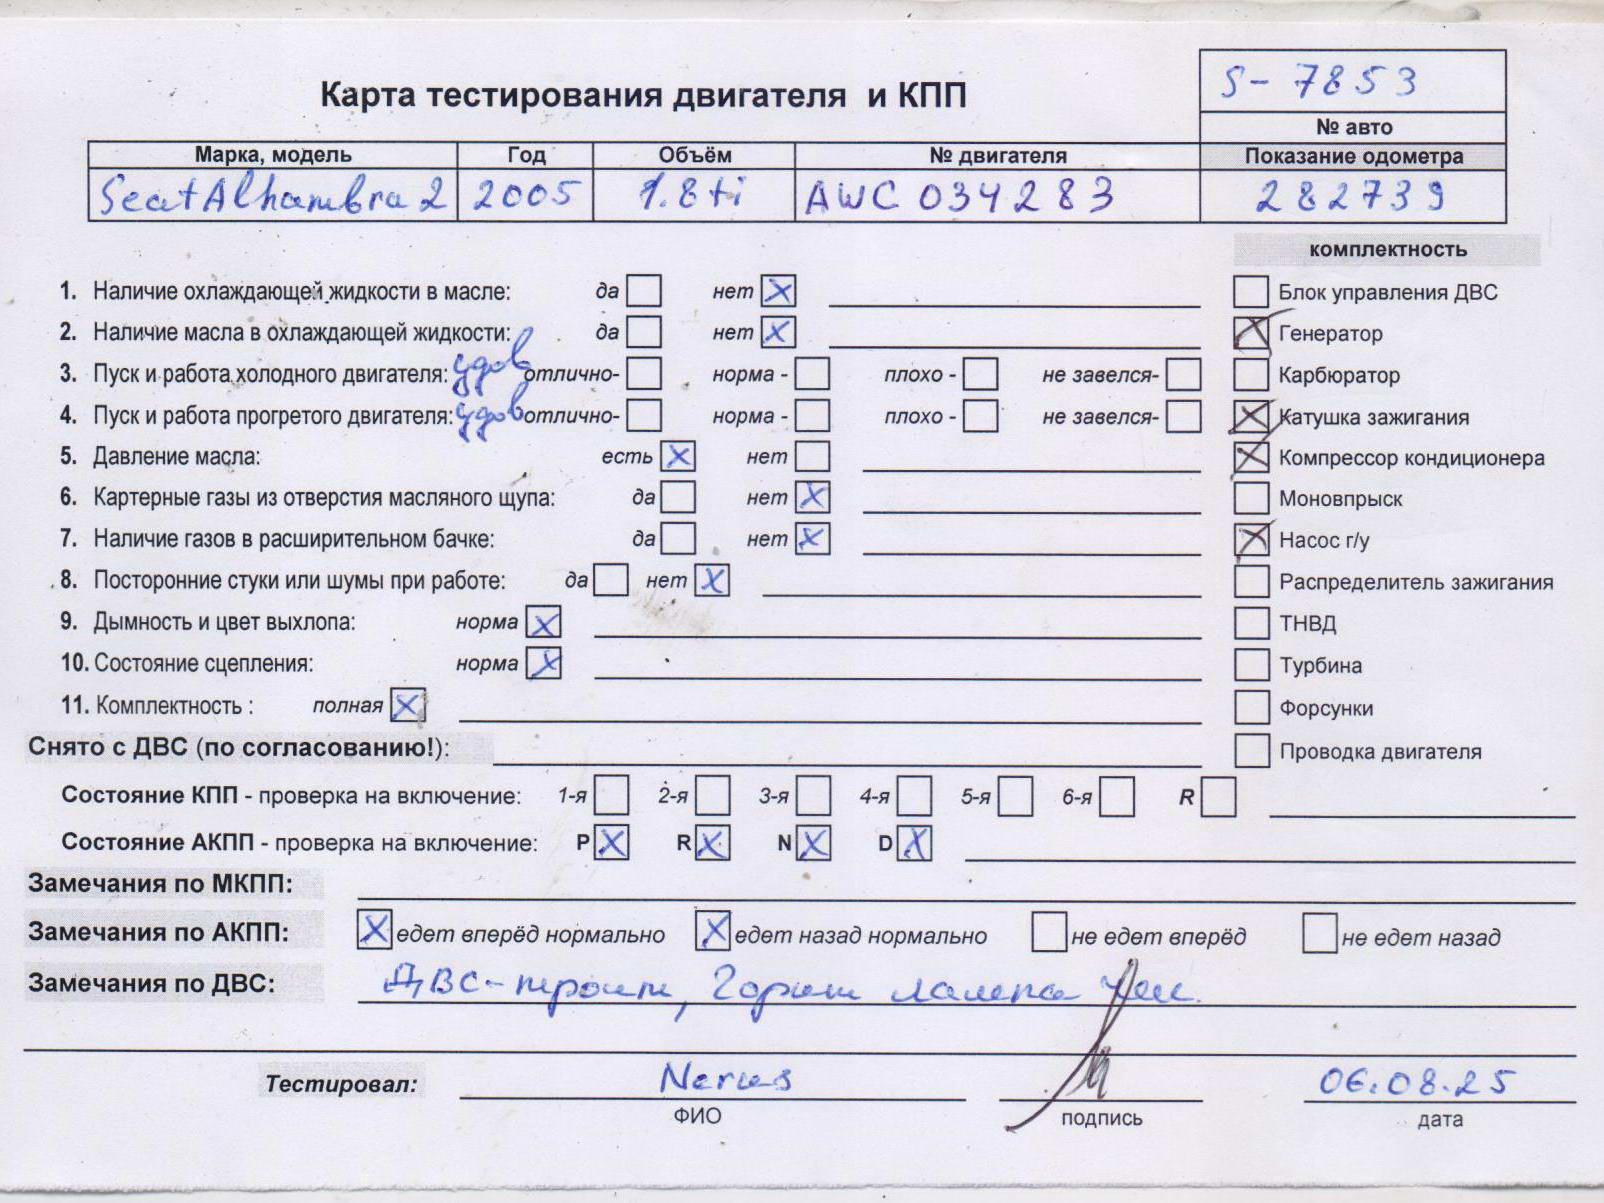 S- 7853
Карта тестирования двигателя и КПП
№ авто
Марка, модель Год Объём № двигателя Показание одометра
Seat Alhambra 2 2005 1.8ti AWC 034283 282739
комплектность
1. Наличие охлаждающей жидкости в масле: да нет X
Блок управления ДВС
2. Наличие масла в охлаждающей жидкости: да нет X
X Генератор
3. Пуск и работа холодного двигателя: удов отлично- норма - плохо - не завелся-
Карбюратор
4. Пуск и работа прогретого двигателя: удов отлично- норма - плохо - не завелся-
X Катушка зажигания
5. Давление масла: есть X нет
X Компрессор кондиционера
6. Картерные газы из отверстия масляного щупа: да нет X
Моновпрыск
7. Наличие газов в расширительном бачке: да нет X
X Насос г/у
8. Посторонние стуки или шумы при работе: да нет X
Распределитель зажигания
9. Дымность и цвет выхлопа: норма X
ТНВД
10. Состояние сцепления: норма X
Турбина
11. Комплектность : полная X
Форсунки
Снято с ДВС (по согласованию!):
Проводка двигателя
Состояние КПП - проверка на включение: 1-я 2-я 3-я 4-я 5-я 6-я R
Состояние АКПП - проверка на включение: P X R X N X D X
Замечания по МКПП:
Замечания по АКПП: X едет вперёд нормально X едет назад нормально не едет вперёд не едет назад
Замечания по ДВС: ДВС-троит, Горит лампа
Тестировал: 06.08.25
ФИО подпись дата